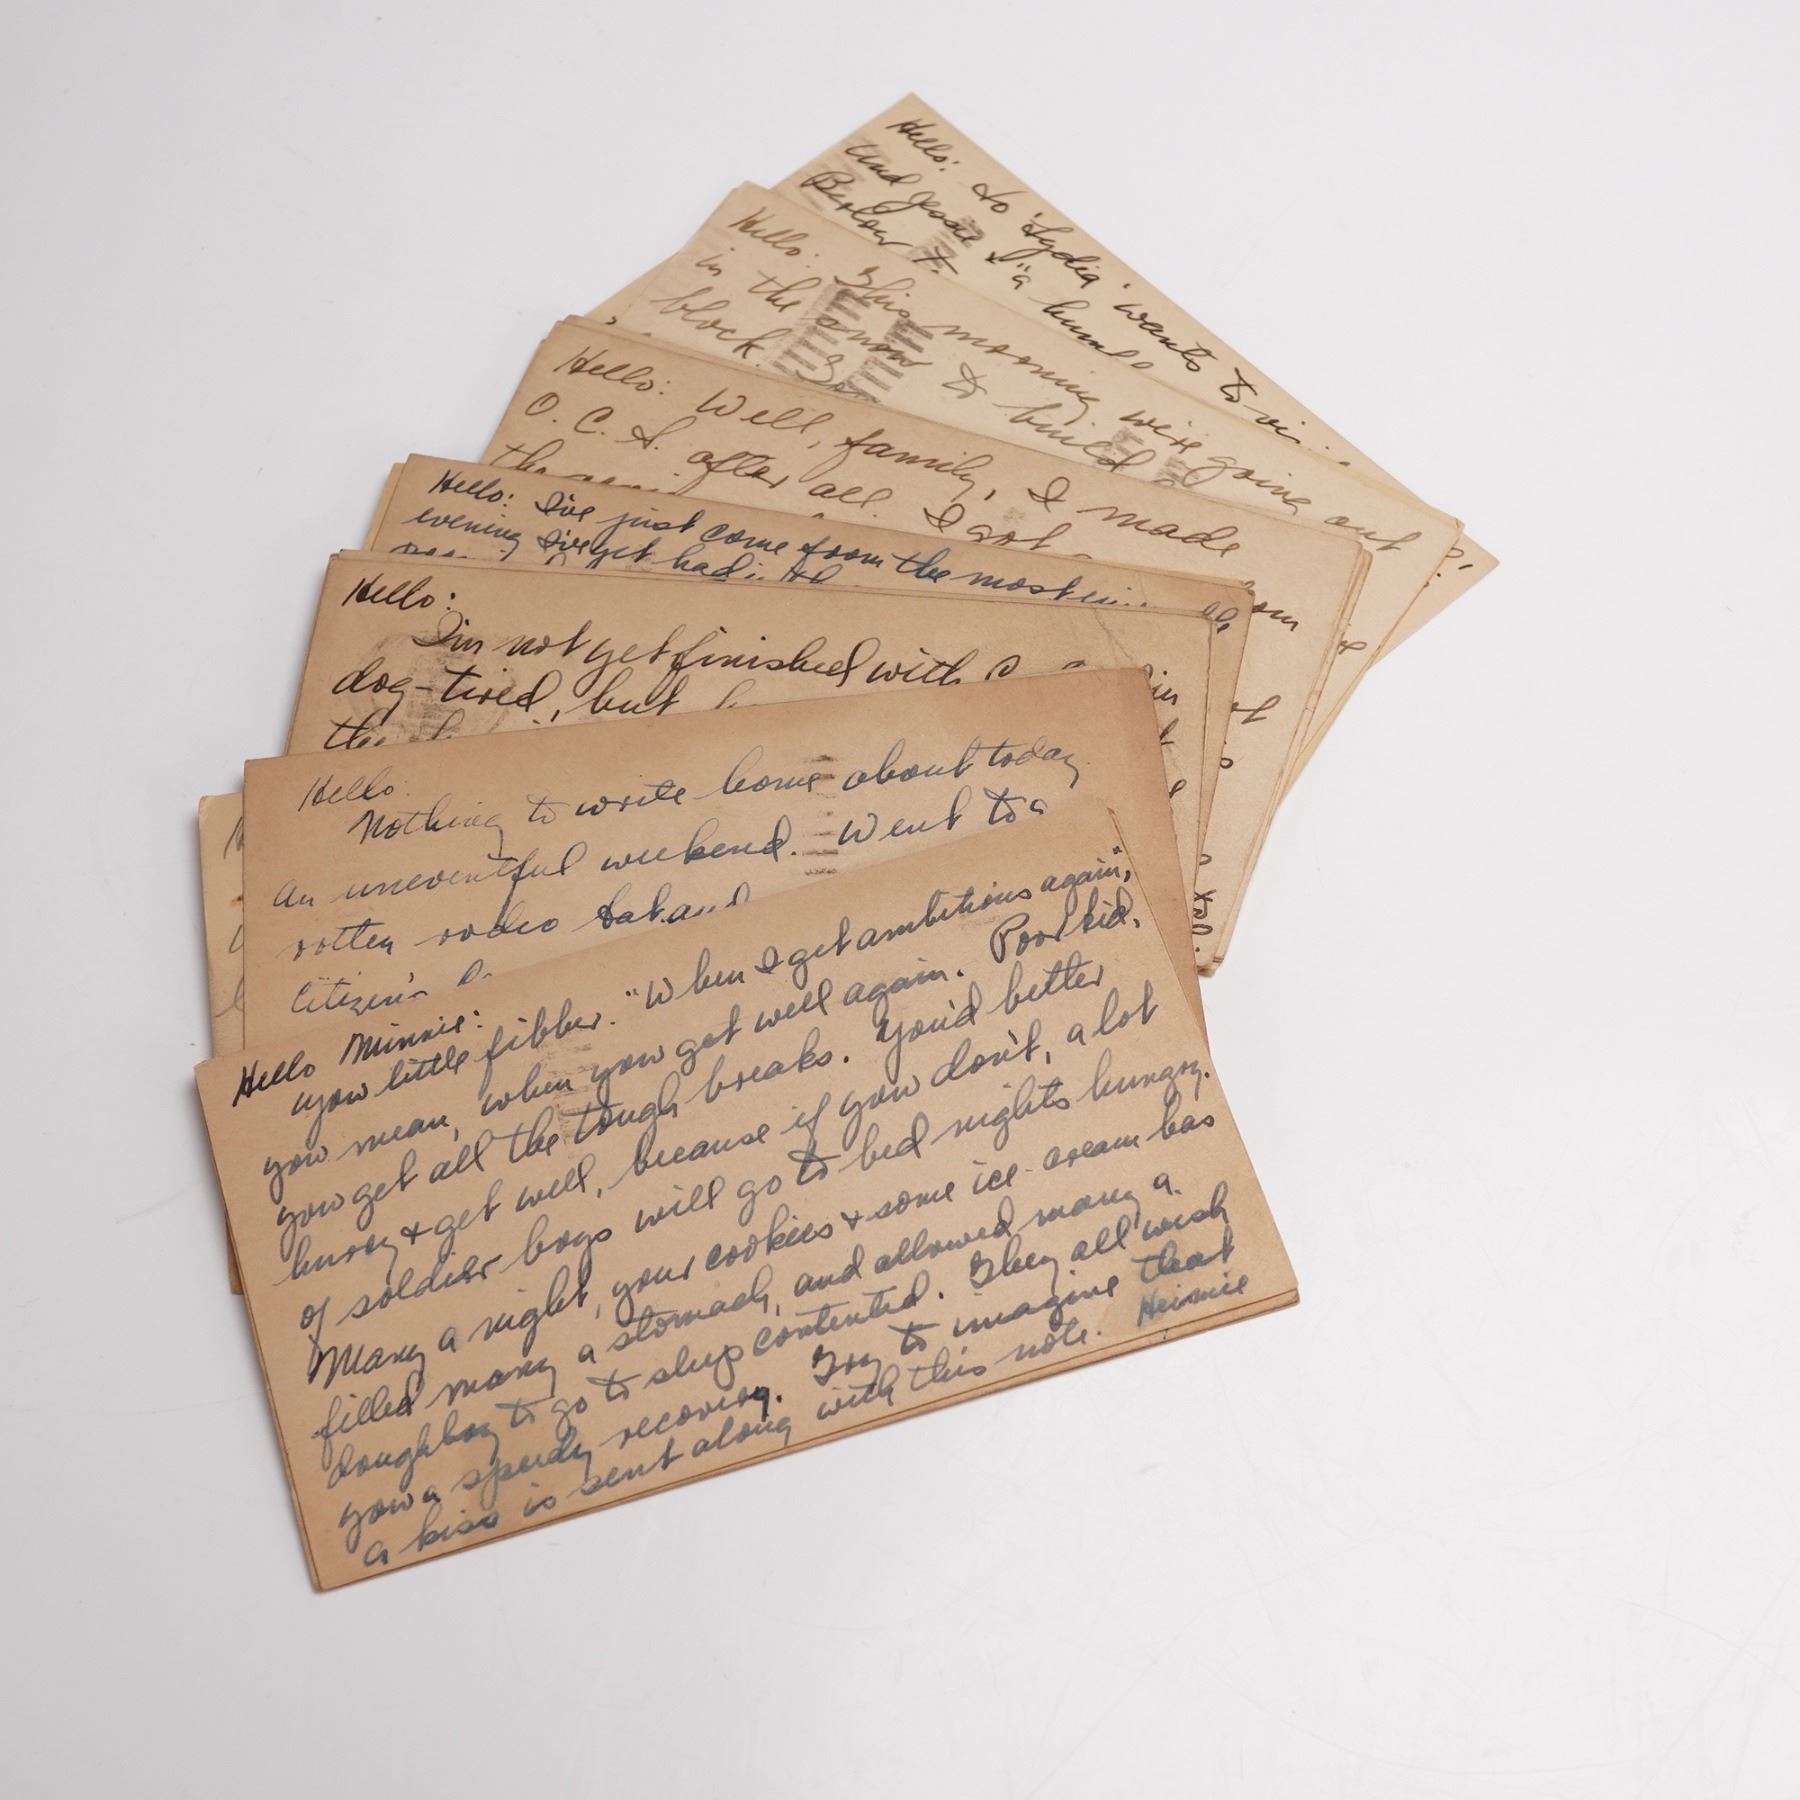 Hello: So 'Lydia' wants to
and Jessie & "a
Barlow T.
Hello: This morning we're going out
in the snow to build
block.
Hello: Well, family, I made
O. C. S. after all. I got
the
Hello: I've just come from the most
evening I've yet had
Hello:
I'm not yet finished with
dog-tired, but
the
Hello:
Nothing to write home about today.
An uneventful weekend. Went to a
rotten rodeo Sat. and
Citizen's
Hello Minnie:
You little fibber. "When I get ambitious again",
you mean, when you get well again. Poor kid,
you get all the tough breaks. You'd better
hurry & get well, because if you don't, a lot
of soldier boys will go to bed nights hungry.
Many a night, your cookies & some ice cream has
filled many a stomach, and allowed many a
doughboy to go to sleep contented. They all wish
you a speedy recovery. Try to imagine that
a kiss is sent along with this note. Heimie